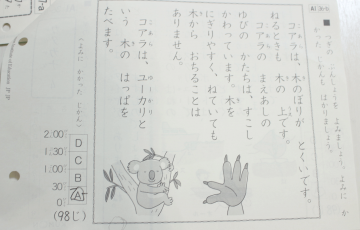 ■つぎの ぶんしょうを よみましょう。よみに
かかった じかんを はかりましょう。
コアラは、木のぼりが とくいです。
ねるときも 木の 上です。
コアラの まえあしの
ゆびの かたちは、すこし
かわって います。木を
にぎりやすく、ねていても
木から おちることは
ありません。
コアラは、ユーカリと
いう 木の はっぱを
たべます。
(よみに かかった じかん)
2:00
1:30
1:00
30
D
C
B
A
(98じ)